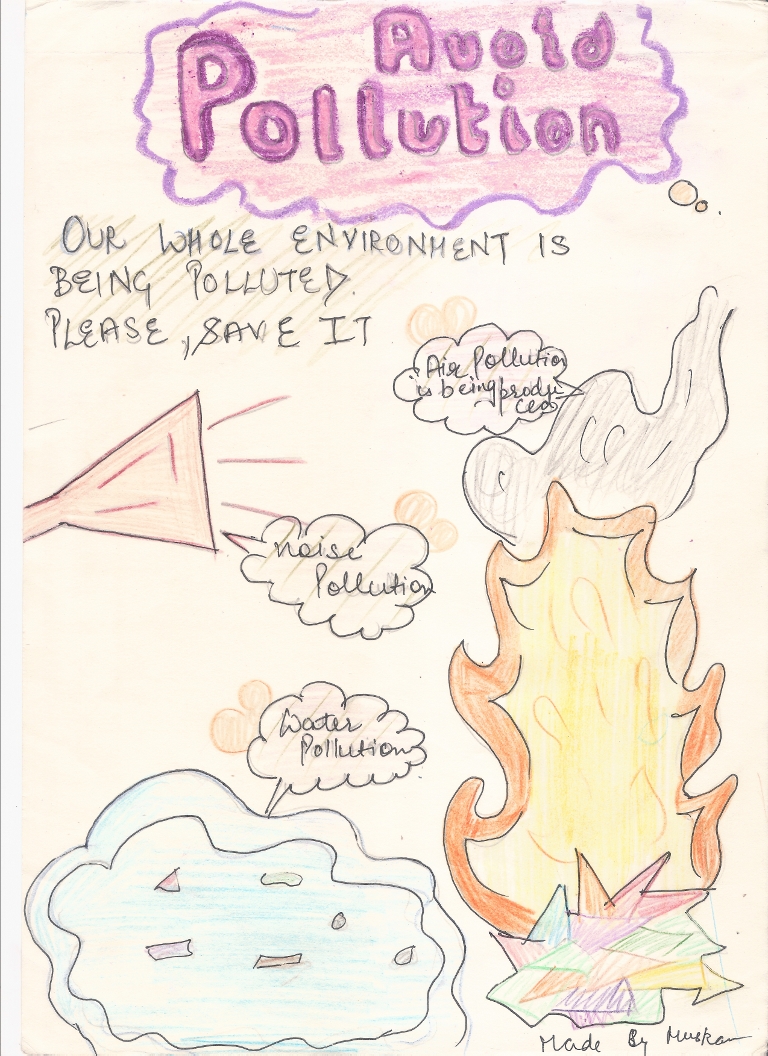 Avoid
Pollution
OUR WHOLE ENVIRONMENT IS
BEING POLLUTED.
PLEASE, SAVE IT
Air Pollution
is being produ
ced
noise
Pollution
Water
Pollution
Made By Muskan